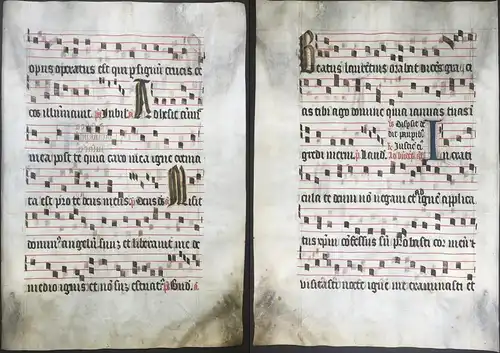 opus operatus est qui p signū crucis ce
cos illuminauit. ps Iubil. a Adhesit aīm̄
mea post te quia caro mea igne crema
ta est pro te deus meus. ps Deus ds Misit
dominꝰ angelū suū et liberauit me de
medio ignis et nō sū estuatꝰ ps Bn̄d. a
Beatus laurētius orabat dicēs gracī
as tibi ago domine quia ianuas tuas ī
gredi merui. ps Laud.
In crati
cula te deum nō negaui et ad ignē applica
tus xp̄m cōfessus sū probasti cor meū et
uisitasti nocte igne me examinasti et